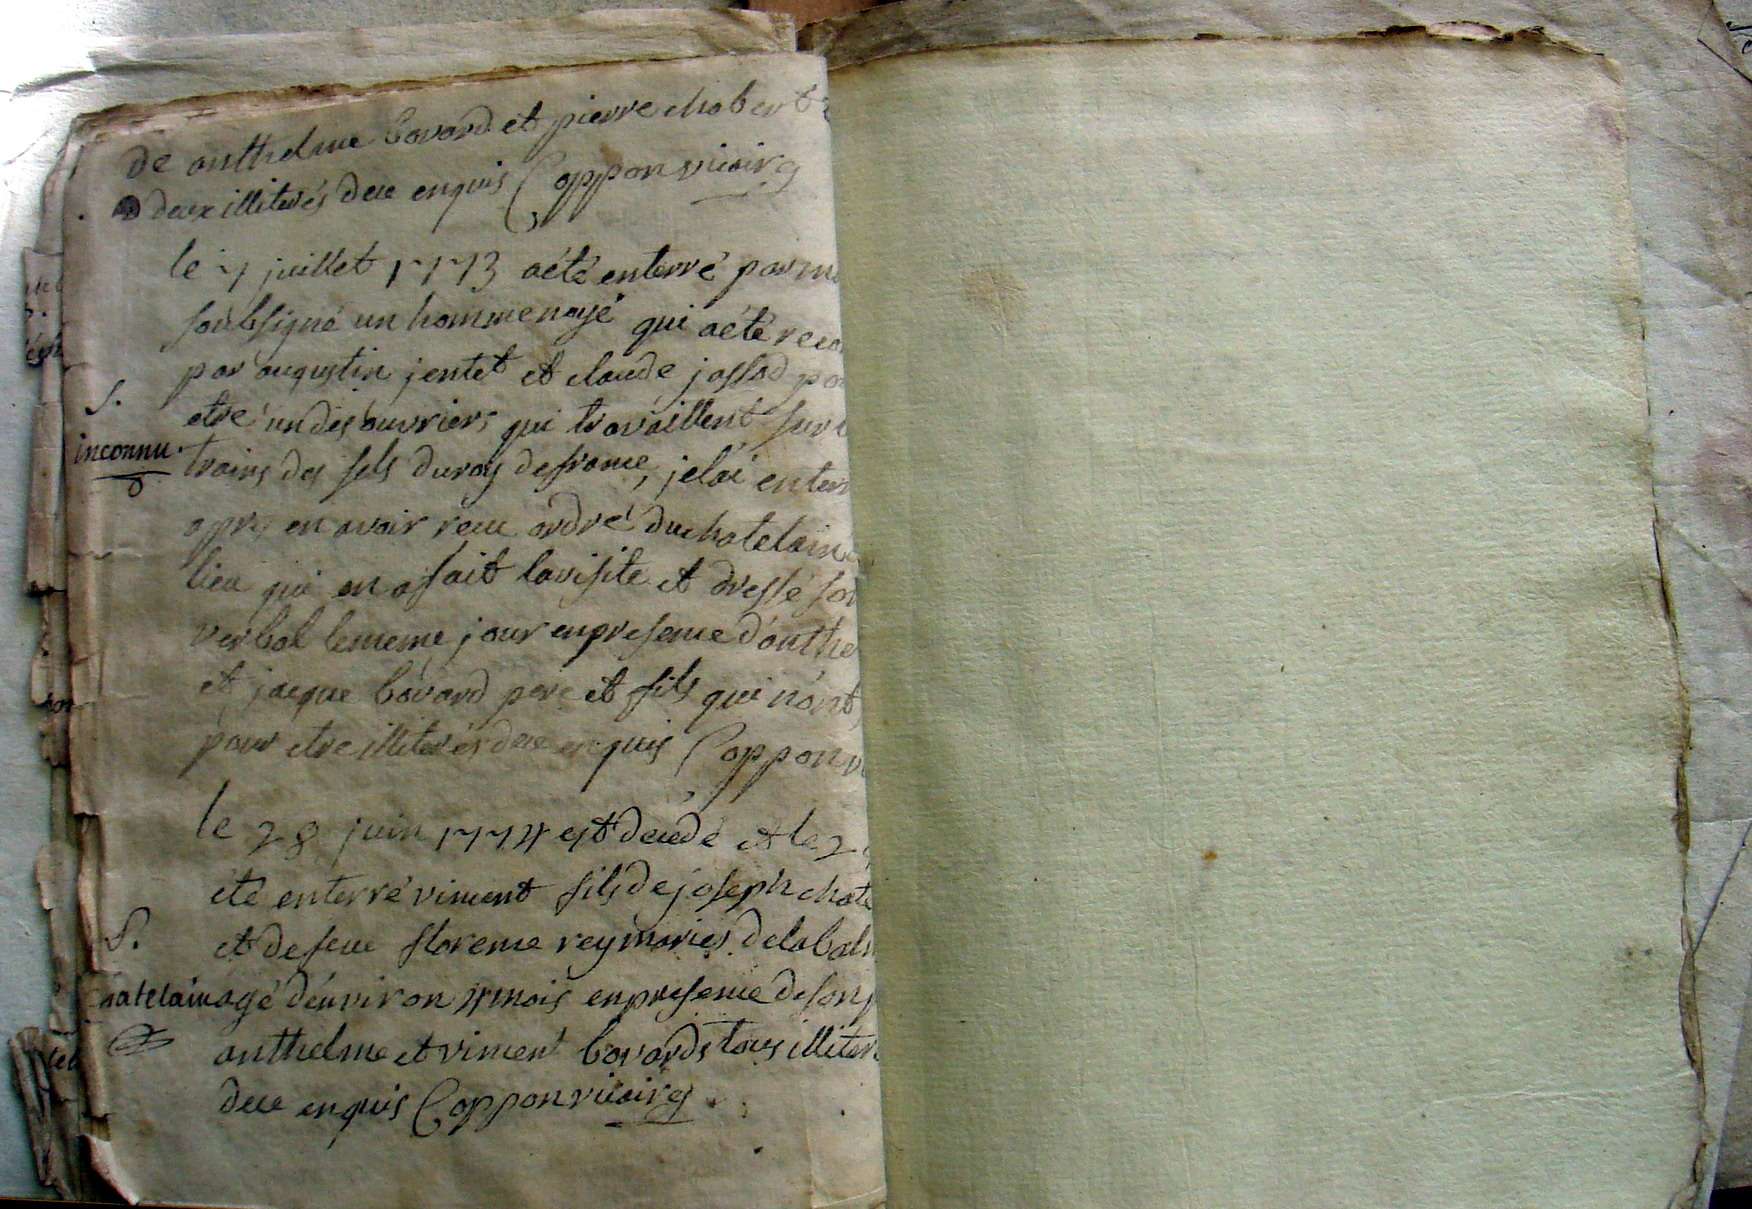 de anthelme bovard et pierre chabert
deux illiterés deue enquis Coppon vicaire
le 7 juillet 1773 a été enterré par m
soubsigné un homme noyé qui a été reco
par augustin jentet et claude jossod po
S.
etre un des ouvriers qui travaillent sur
inconnu. trains des sels du roy de france, je lai enter
apres en avoir receu ordre du chatelain
lieu qui en a fait la visite et dressé son
verbal le meme jour en presence d'anthe
et jacque bovard pere et fils qui n'ont
pour etre illiterés deue enquis Coppon v
le 28 juin 1774 est decedé et le 2
été enterré vincent fils de joseph chate
S. et de feue florence rey mariés de la bal
hatelain agé d'environ 4 mois en presence de son
anthelme et vincent bovards tous illiter
deue enquis Coppon vicaire